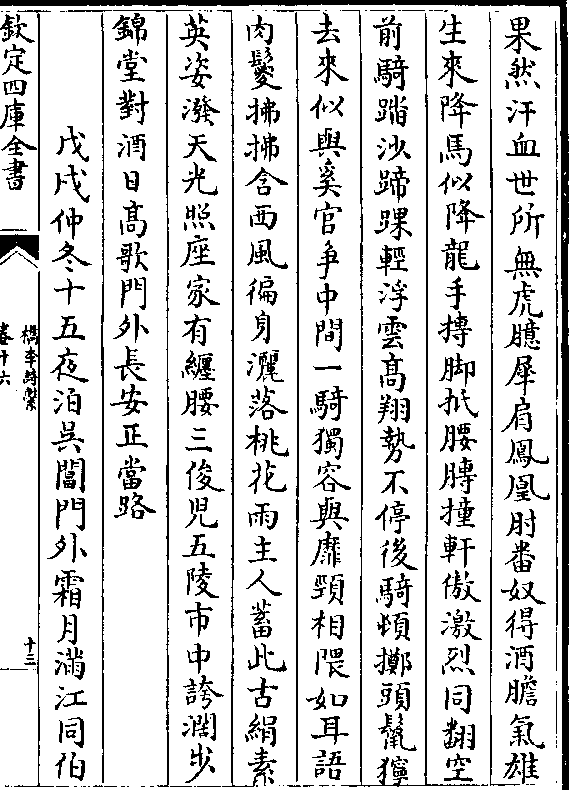 果然汗血世所無虎臆犀肩鳳凰肘番奴得酒膽氣雄
生來降馬似降龍手摶脚抵腰膊撞軒傲激烈同翻空
前騎踏沙蹄踝輕浮雲髙翔勢不停後騎頓擲頭鬣獰
去來似與奚官争中間一騎獨容與靡頸相隈如耳語
肉鬉拂拂含西風徧身灑落桃花雨主人蓄此古絹素
英姿潑天光照座家有纏腰三俊兒五陵市中誇濶步
錦堂對酒日髙歌門外長安正當路
戊戌仲冬十五夜泊吳閶門外霜月滿江同伯
欽定四庫全書
檇李詩繫
卷十六
十三